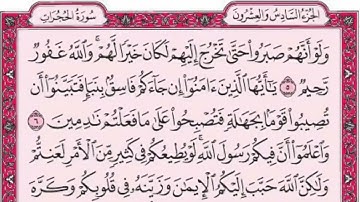 سُورَةُ الحُجُرَاتِ
الجُزْءُ السَّادِسُ وَالعِشْرُونَ
وَلَوْ أَنَّهُمْ صَبَرُوا۟ حَتَّىٰ تَخْرُجَ إِلَيْهِمْ لَكَانَ خَيْرًا لَّهُمْ ۚ وَٱللَّهُ غَفُورٌ
رَّحِيمٌ ٥ يَٰٓأَيُّهَا ٱلَّذِينَ ءَامَنُوٓا۟ إِن جَآءَكُمْ فَاسِقٌۢ بِنَبَإٍ فَتَبَيَّنُوٓا۟ أَن
تُصِيبُوا۟ قَوْمًۢا بِجَهَٰلَةٍ فَتُصْبِحُوا۟ عَلَىٰ مَا فَعَلْتُمْ نَٰدِمِينَ ٦
وَٱعْلَمُوٓا۟ أَنَّ فِيكُمْ رَسُولَ ٱللَّهِ ۚ لَوْ يُطِيعُكُمْ فِى كَثِيرٍ مِّنَ ٱلْأَمْرِ لَعَنِتُّمْ
وَلَٰكِنَّ ٱللَّهَ حَبَّبَ إِلَيْكُمُ ٱلْإِيمَٰنَ وَزَيَّنَهُۥ فِى قُلُوبِكُمْ وَكَرَّهَ